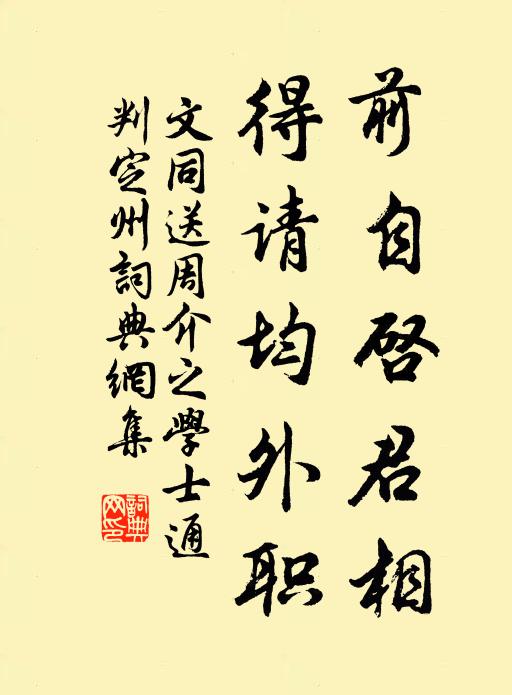 前自啓君相
得请均外职
文同送周介之學士通
判定州詞典網集
詞典网印